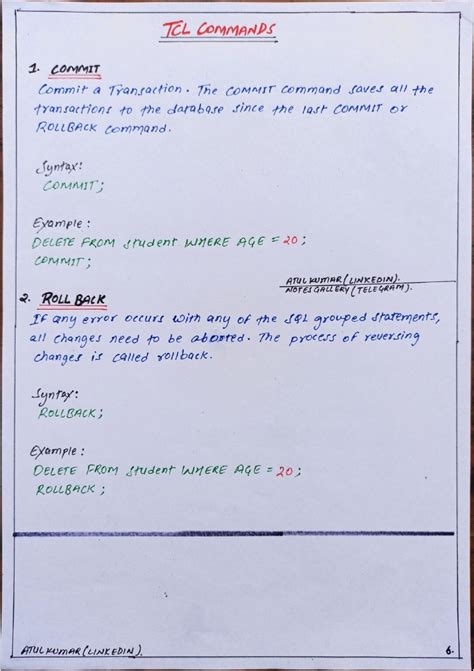 TCL COMMANDS
1. COMMIT
Commit a Transaction. The COMMIT command saves all the
transactions to the database since the last COMMIT or
ROLLBACK command.
Syntax:
COMMIT;
Example:
DELETE FROM student WHERE AGE = 20;
COMMIT;
ATUL KUMAR (LINKEDIN).
NOTES GALLERY (TELEGRAM).
2. ROLL BACK
If any error occurs with any of the SQL grouped statements,
all changes need to be aborted. The process of reversing
changes is called rollback.
Syntax:
ROLLBACK;
Example:
DELETE FROM student WHERE AGE = 20;
ROLLBACK;
ATUL KUMAR (LINKEDIN).
6.